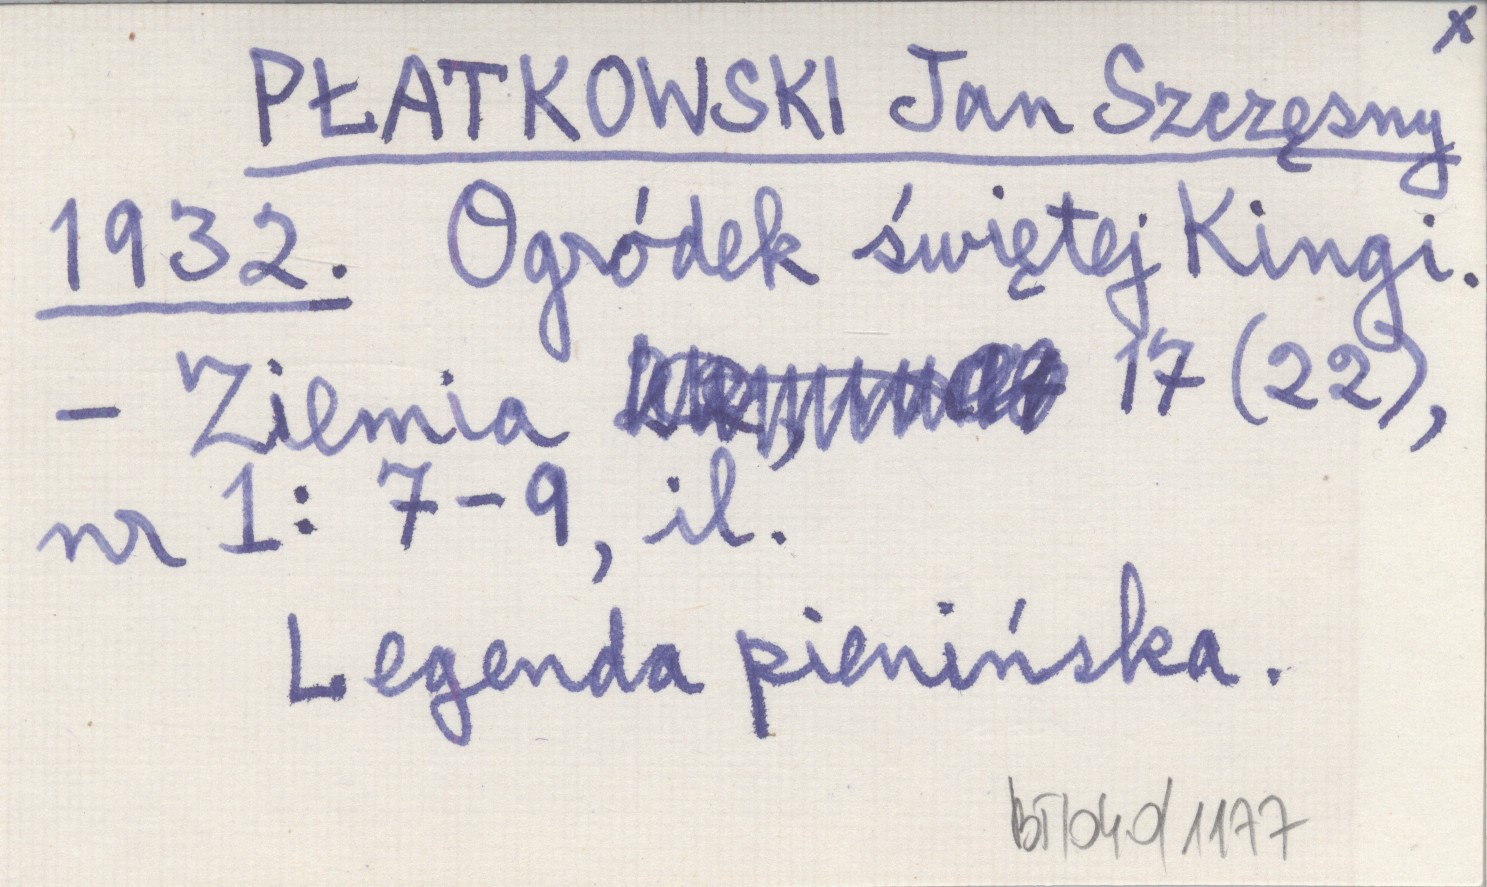 x
PŁATKOWSKI Jan Szczęsny
1932. Ogródek świętej Kingi.
- Ziemia 17 (22),
nr 1: 7-9, il.
Legenda pienińska.
BT/040/1177